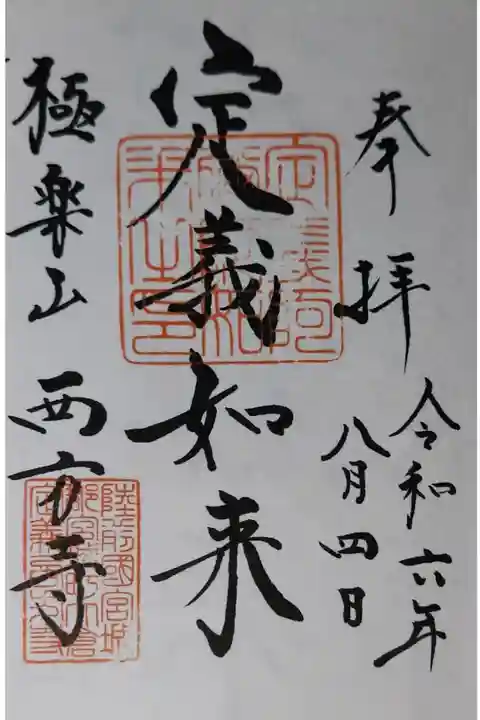 奉拝
令和六年
八月四日
定義如来
極楽山 西方寺